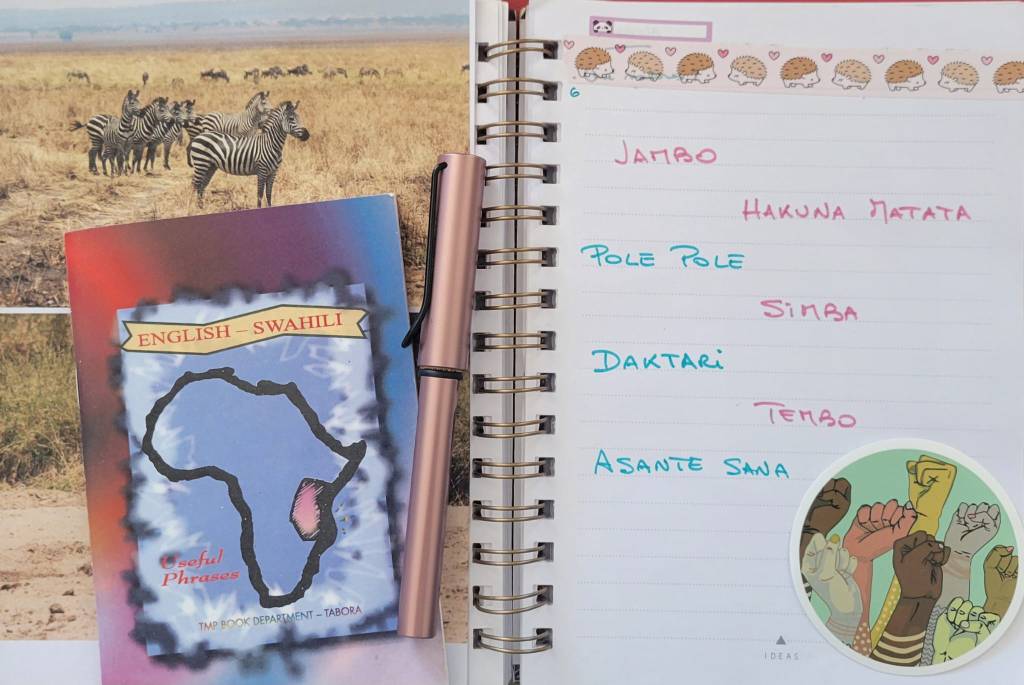 ENGLISH – SWAHILI
Useful
Phrases
TMP BOOK DEPARTMENT – TABORA
6
JAMBO
HAKUNA MATATA
POLE POLE
SiMBA
DAKTARi
TEMBO
ASANTE SANA
IDEAS